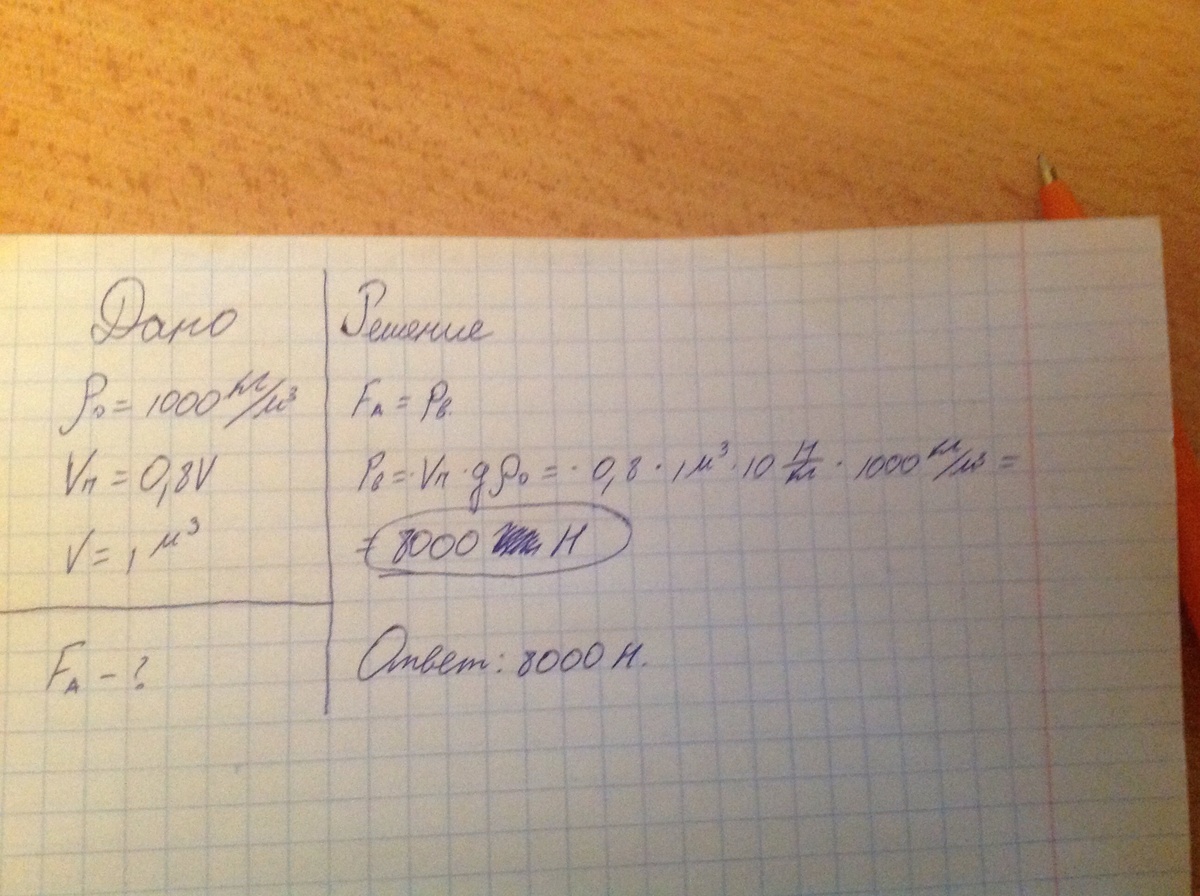 Дано
ρ₀ = 1000 кг/м³
Vп = 0,8V
V = 1 м³
Fд - ?
Решение
Fд = Pв.
Pв = · Vп · gρ₀ = · 0,8 · 1 м³ · 10 Н/кг · 1000 кг/м³ =
= 8000 Н
Ответ: 8000 Н.